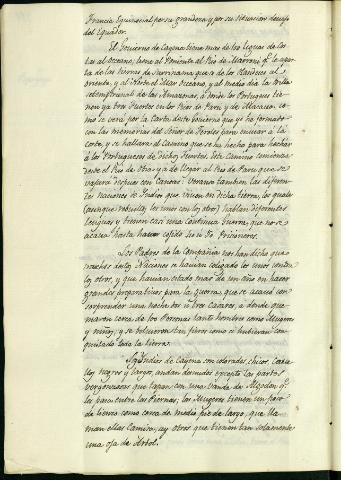 Francia Equinocial por su grandeza y por su situacion devajo
del Equador.
El Govierno de Cayena tiene mas de cien leguas de cos-
ta al Oceano; tiene al Poniente el Rio de Marroni qe. le apar-
ta de las tierras de Surrnama que es de los Olandeses al
oriente, y al Norte el Mar Oceano, y al medio dia la Orilla
septemtrional de las Amazonas, y donde los Portugueses tie-
nen ya tres Fuertes en los Rios de Parù y de Macaua: co-
mo se verá por la Carta de este Govierno que yo he formado
con las memorias del Señor de Feroles para enviar á la
Corte, y se hallará el Camino que se ha hecho para hechar
à los Portugueses de dichos Fuertes. Este Camino comienza
desde el Rio de Ovia, y à de llegar al Rio de Parù que se
vajara despues con Canoas: Veranse tambien las diferen-
tes naciones de Indios que viven en dicha tierra, los quales
(aunque rebueltos los unos con los otros) hablan diferentes
lenguas y tienen casi una Continua Guerra, que no se
acava hasta haver cojido 10 ú 20 Prisioneros.
Los Padres de la Compañia nos han dicho que
muchas de estas Naciones se havian coligado las unas contra
las otras, y que havian estado mas de un año en hacer
grandes preparativos para la guerra, que se acavó con
sorprender una noche dos u tres Casares, a donde que-
maron cerca de 80 Personas tanto hombres como Mugeres
y niños; y se bolvieron tan fieros como si hubieran con-
quistado toda la tierra.
Los Yndios de Cayena son colorados, chicos, Cave-
llos negros y largos, andan desnudos excepto las partes
vergonzosas que tapan con una vanda de Algodon qe.
les pasa entre las Piernas; las Mugeres tienen un paso
de lienzo como cerca de medio pie de largo, que lla-
man ellas Camisa; ay otras que tienen tan solamente
una oja de Arbol.